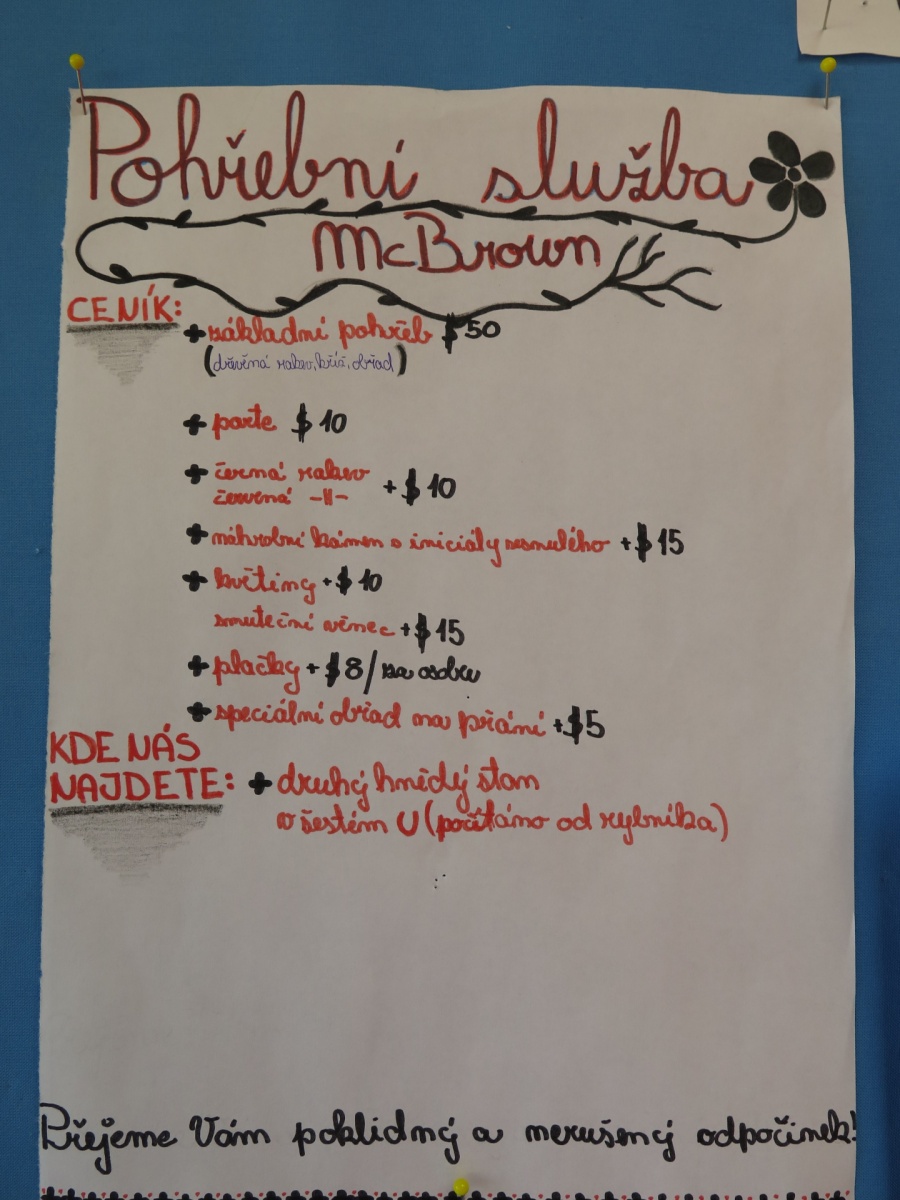 Pohřební služba
McBrown
CENÍK:
+ základní pohřeb $50
(dřevěná rakev, kříž, obřad)
+ parte $10
+ černá rakev
červená -||- + $10
+ náhrobní kámen s iniciály zesnulého + $15
+ květiny + $10
smuteční věnec + $15
+ plačky + $8/za osobu
+ speciální obřad na přání + $5
KDE NÁS
NAJDETE: + druhý hnědý stan
v šestém U (počítáno od rybníka)
Přejeme Vám poklidný a nerušený odpočinek!